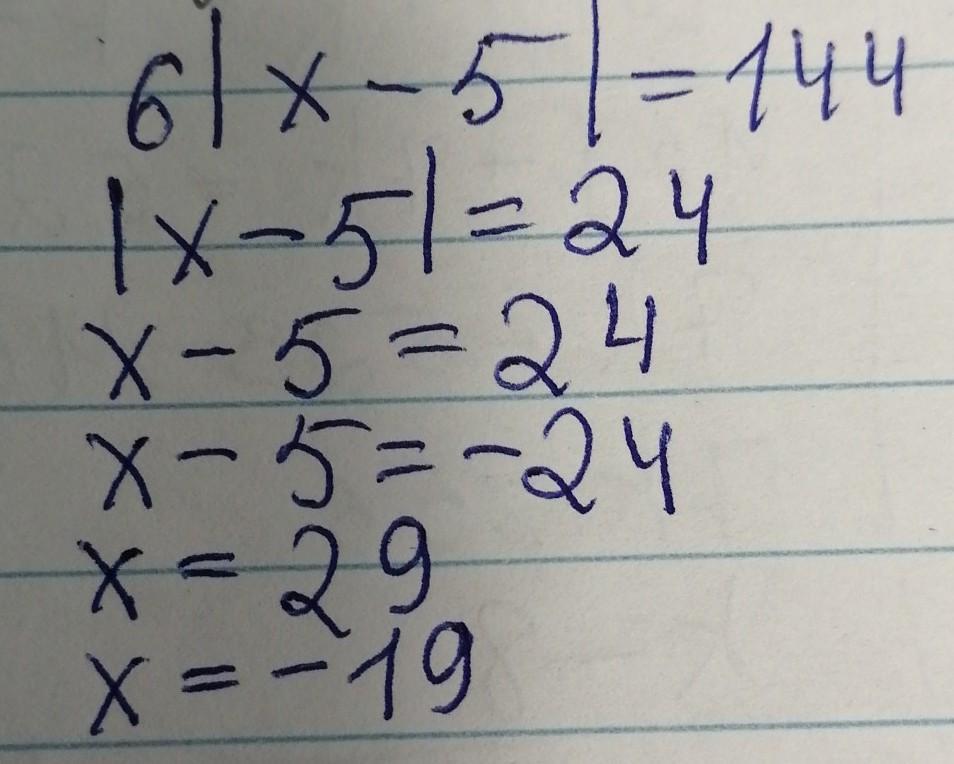 6|x-5|=144
|x-5|=24
x-5=24
x-5=-24
x=29
x=-19